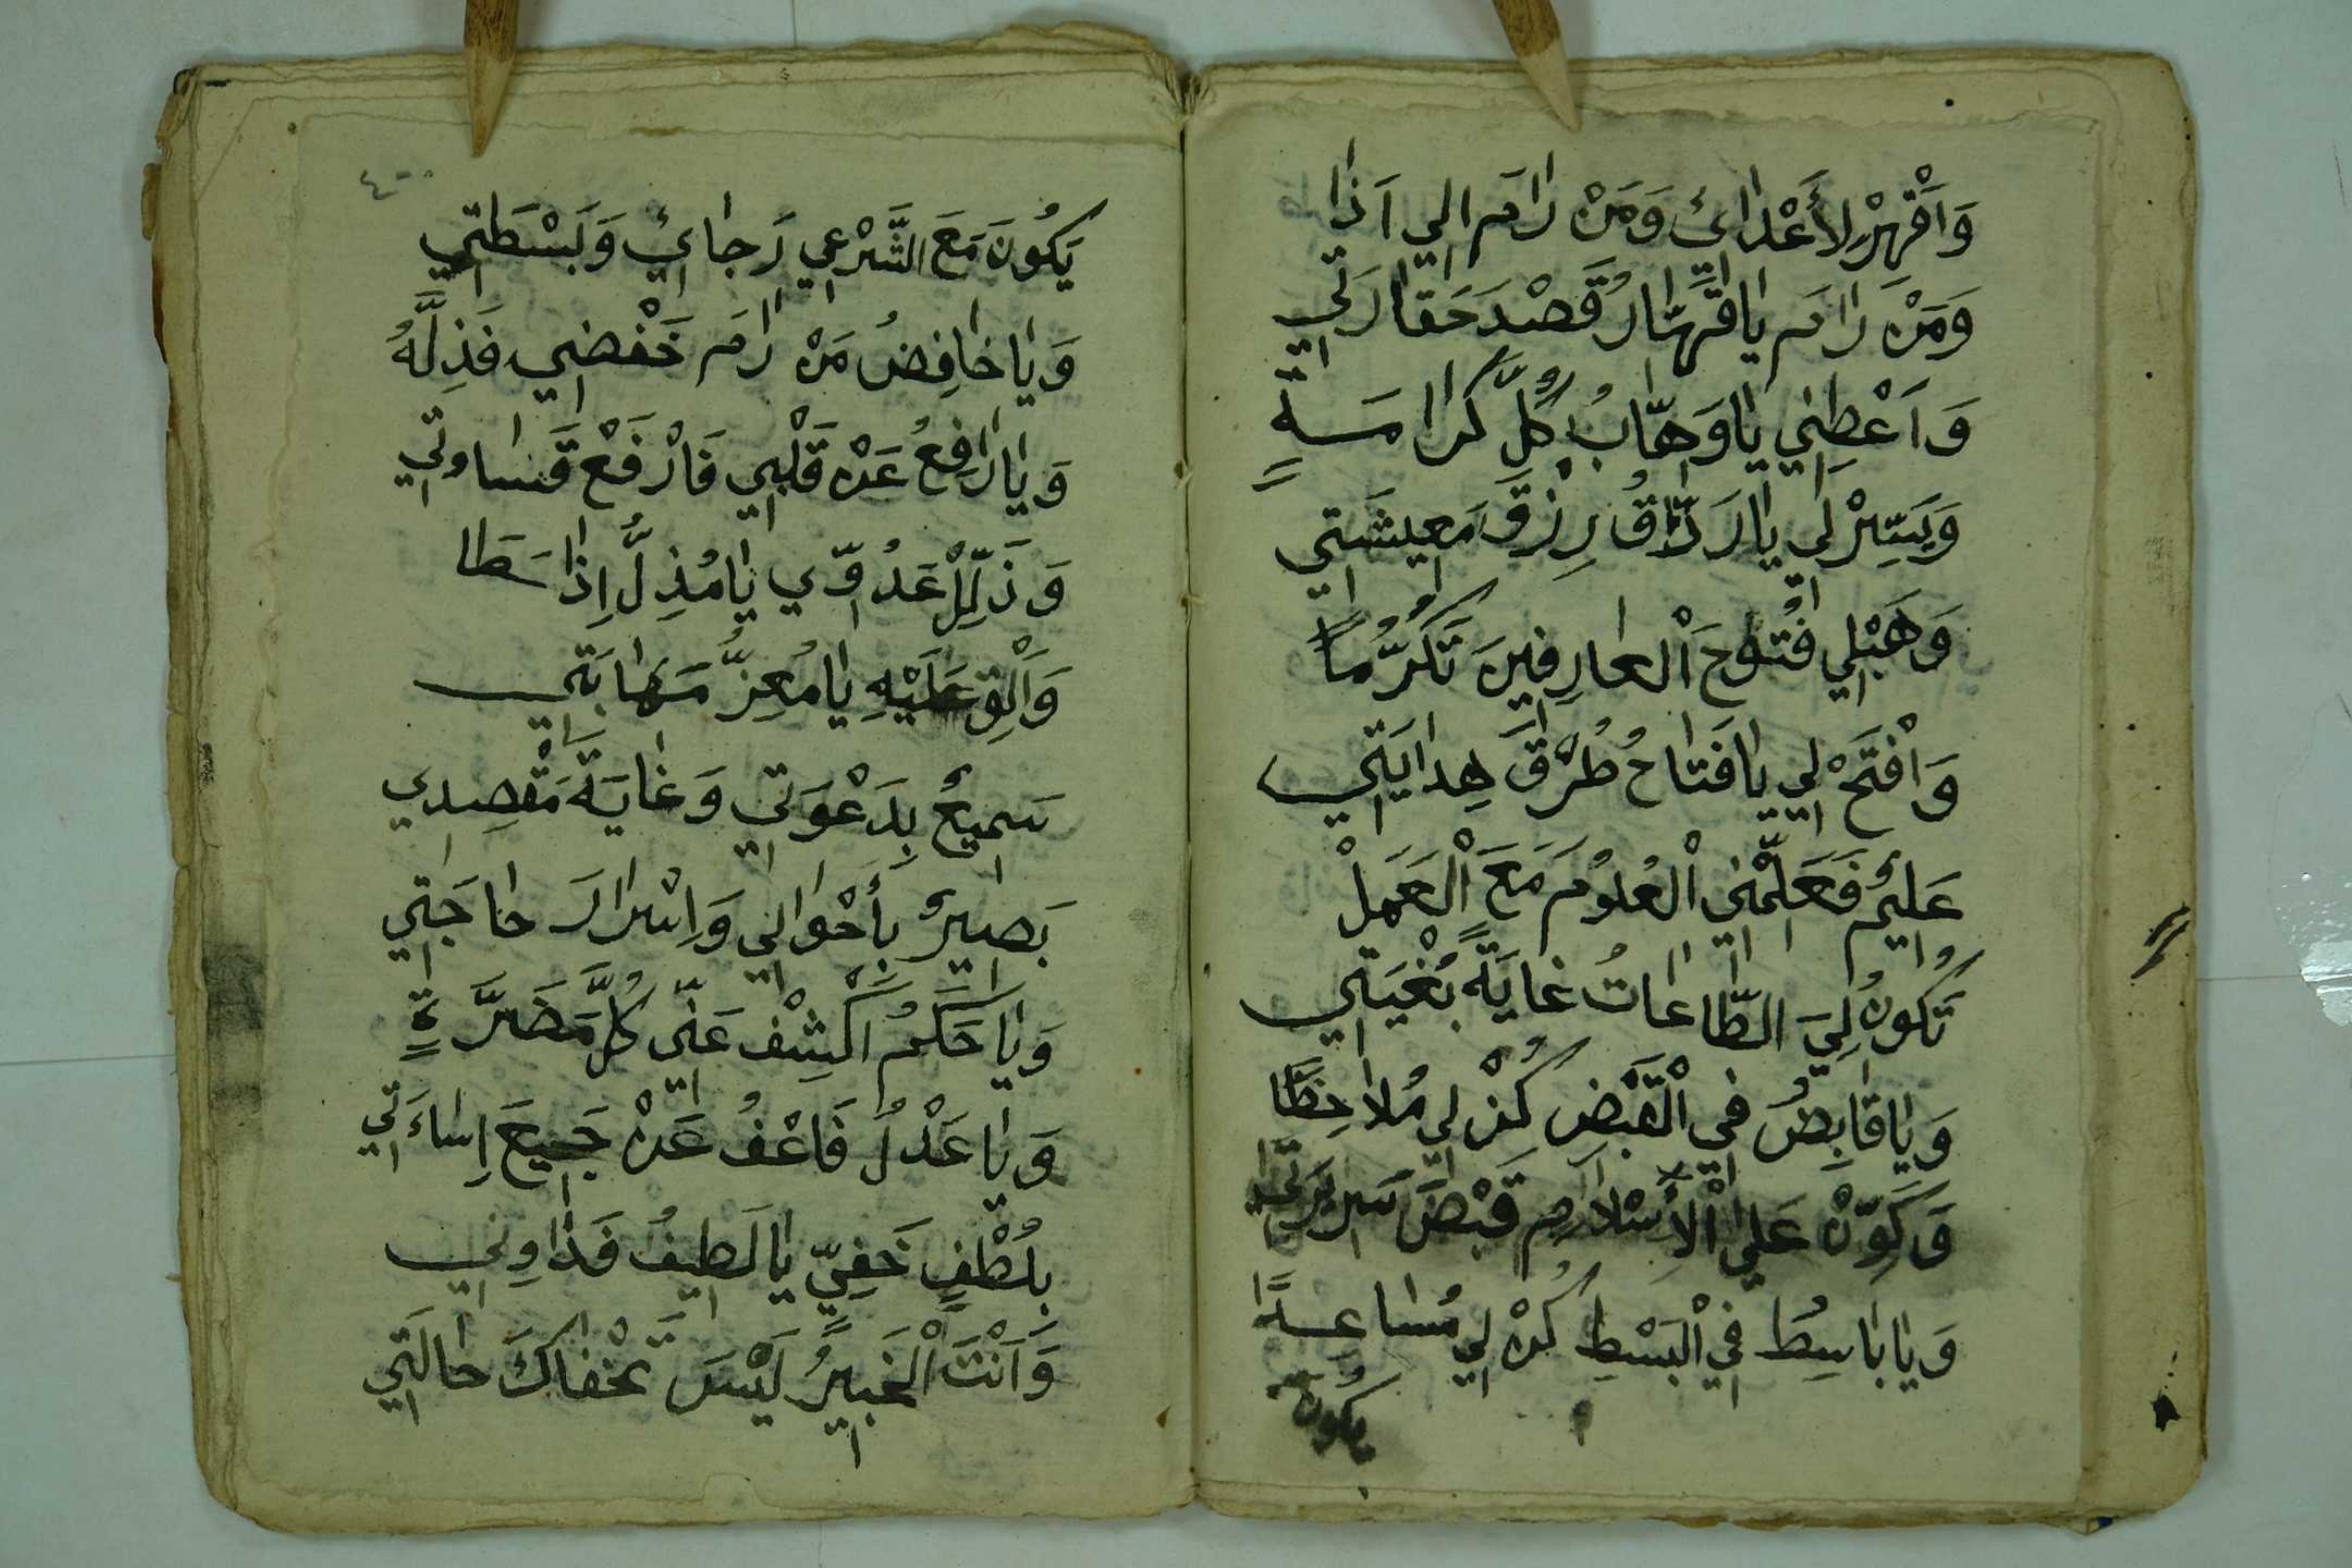 وَاَقْهِرْ لِأَعْدَائِ وَمَنْ رَامَ الِي اَذَا
وَمَنْ رَامَ يَا قَهَّارُ قَصْدَ حَقَارَتِي
وَاَعْطِنِي يَا وَهَّابُ كُلَّ كَرَامَةٍ
وَيَسِّرْلِي يَا رَزَّاقُ رِزْقَ مَعِيشَتِي
وَهَبْلِي فُتُوحَ اْلعَارِفِينَ تَكَرُّمًا
وَافْتَحْ لِي يَا فَتَاحُ طُرْقَ هِدَايَتِي
عَلِيمٌ فَعَلِّمْنِي اْلعُلُومَ مَعَ اْلعَمَلْ
تَكُونُ لِيَ الطَّاعَاتُ غَايَةً بُغْيَتِي
وَيَا قَابِضُ فِي اْلقَبْضِ كُنْ لِي مُلَاحِظًا
وَكَوِّنْ عَلَي اْلأِسْلَامِ قَبْضَ سَرِيرَتِي
وَيَا بَاسِطُ فِي اْلبَسْطِ كُنْ لِي مُسَاعِدًا
يكُونَ
٤٠٠
يَكُونَ مَعَ الشَّرْعِي رَجَائِي وَبَسْطَتِي
وَيَا خَافِضُ مَنْ رَامَ خَفْضِي فَذِلَّهُ
وَيَا رَافِعُ عَنْ قَلْبِي فَارْفَعْ قَسَاوتِي
وَذَلِّلْ عَدُوِّي يَا مُذِلُّ اِذَا سَطَا
وَاَلْقِ عَلَيْهِ يَا مُعِزُّ مَهَابَتِي
سَمِيعٌ بِدَعْوَتِي وَغَايَةَ مَقْصِدِي
بَصِيرٌ بِأَحْوَالِي وَاِسْرَارَ حَاجَتِي
وَيَا حَكَمُ اكْشِفْ عَنِّي كُلَّ مَضَرَّةٍ
وَيَا عَدْلُ فَاعْفُ عَنْ جَمِيعَ اِسَاءَتِي
بِلُطْفٍ خَفِيٍّ يَا لَطِيفُ فَدَاوِنِي
وَاَنْتَ اْلخَبِيرُ لَيْسَ تَخْفَاكَ حَالَتِي